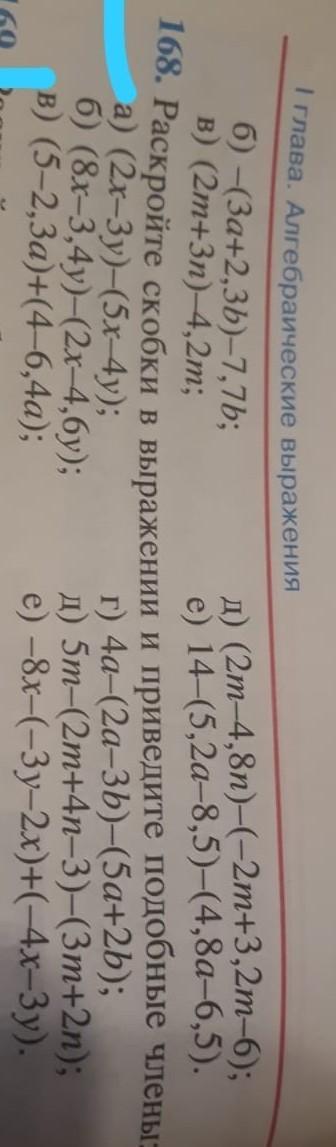 I глава. Алгебраические выражения
б) –(3a+2,3b)–7,7b; д) (2m–4,8n)–(–2m+3,2m–6);
в) (2m+3n)–4,2m; е) 14–(5,2a–8,5)–(4,8a–6,5).
168. Раскройте скобки в выражении и приведите подобные члены:
а) (2x–3y)–(5x–4y); г) 4a–(2a–3b)–(5a+2b);
б) (8x–3,4y)–(2x–4,6y); д) 5m–(2m+4n–3)–(3m+2n);
в) (5–2,3a)+(4–6,4a); е) –8x–(–3y–2x)+(–4x–3y).